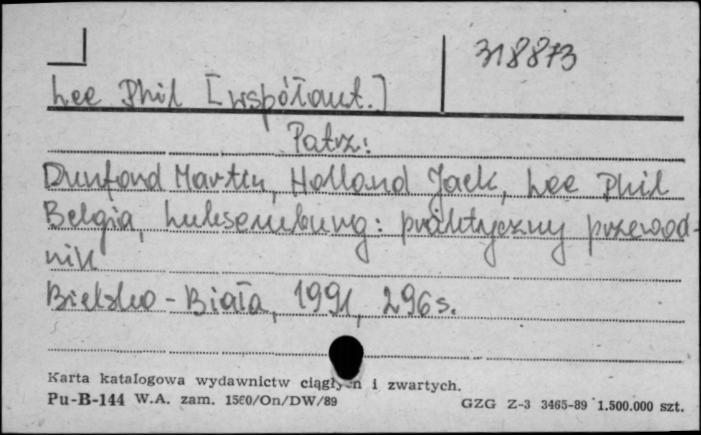 318873
Lee Phil [współaut.]
Patrz:
Dunford Martin, Holland Jack, Lee Phil
Belgia, Luksemburg: praktyczny przewod-
nik
Bielsko-Biała, 1991, 296 s.
Karta katalogowa wydawnictw ciągłych i zwartych.
Pu-B-144 W.A. zam. 1560/On/DW/89 GZG Z-3 3465-89 1.500.000 szt.